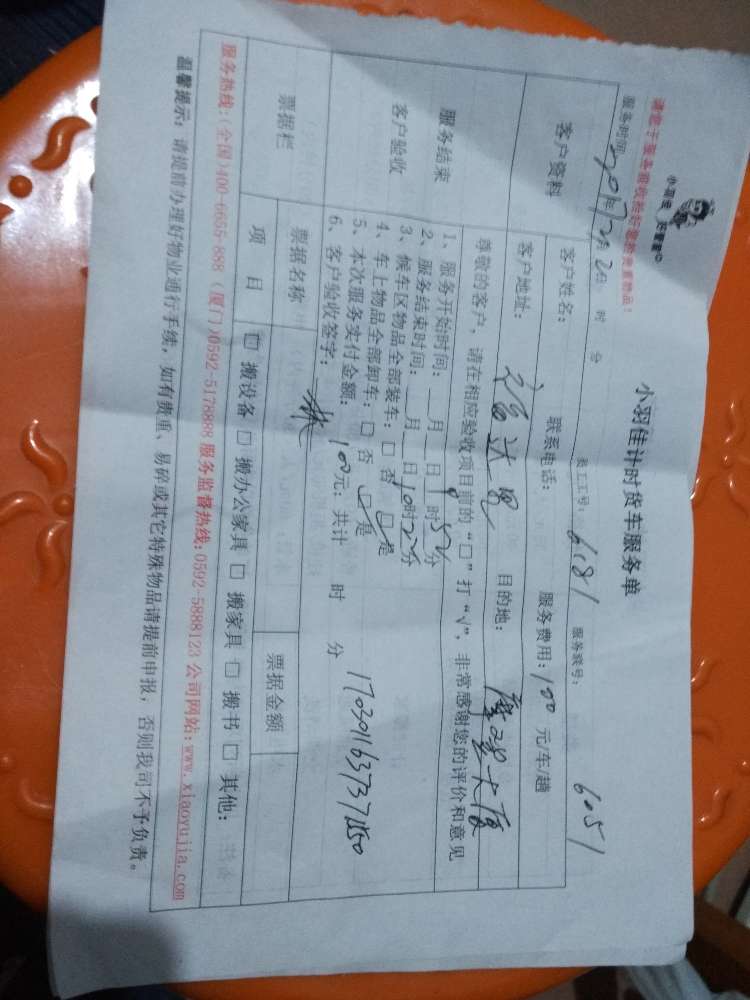 小羽佳计时货车服务单
服务时间：2017年2月2日 时 分 员工工号：6181 服务账号：6051
客户资料
客户姓名： 联系电话： 服务费用：100元/车/趟
客户地址： 目的地：
尊敬的客户，请在相应验收项目前的“□”打“√”，非常感谢您的评价和意见
服务结束
客户验收
1、服务开始时间： 月 日 时 分
2、服务结束时间： 月 日10时20分
3、候车区物品全部装车：□ 否 □ 是
4、车上物品全部卸车：□ 否 □ 是
5、本次服务实付金额：100元；共计 时 分
6、客户验收签字：林
票据栏
票据名称 票据金额
项 目 □ 搬设备 □ 搬办公家具 □ 搬家具 □ 搬书 □ 其他：
服务热线：(全国)400-6655-888（厦门）0592-5178888 服务监督热线：0592-5888123 公司网站：www.xiaoyujia.com
温馨提示：请提前办理好物业通行手续，如有贵重、易碎或其它特殊物品请提前申报，否则我司不予负责。